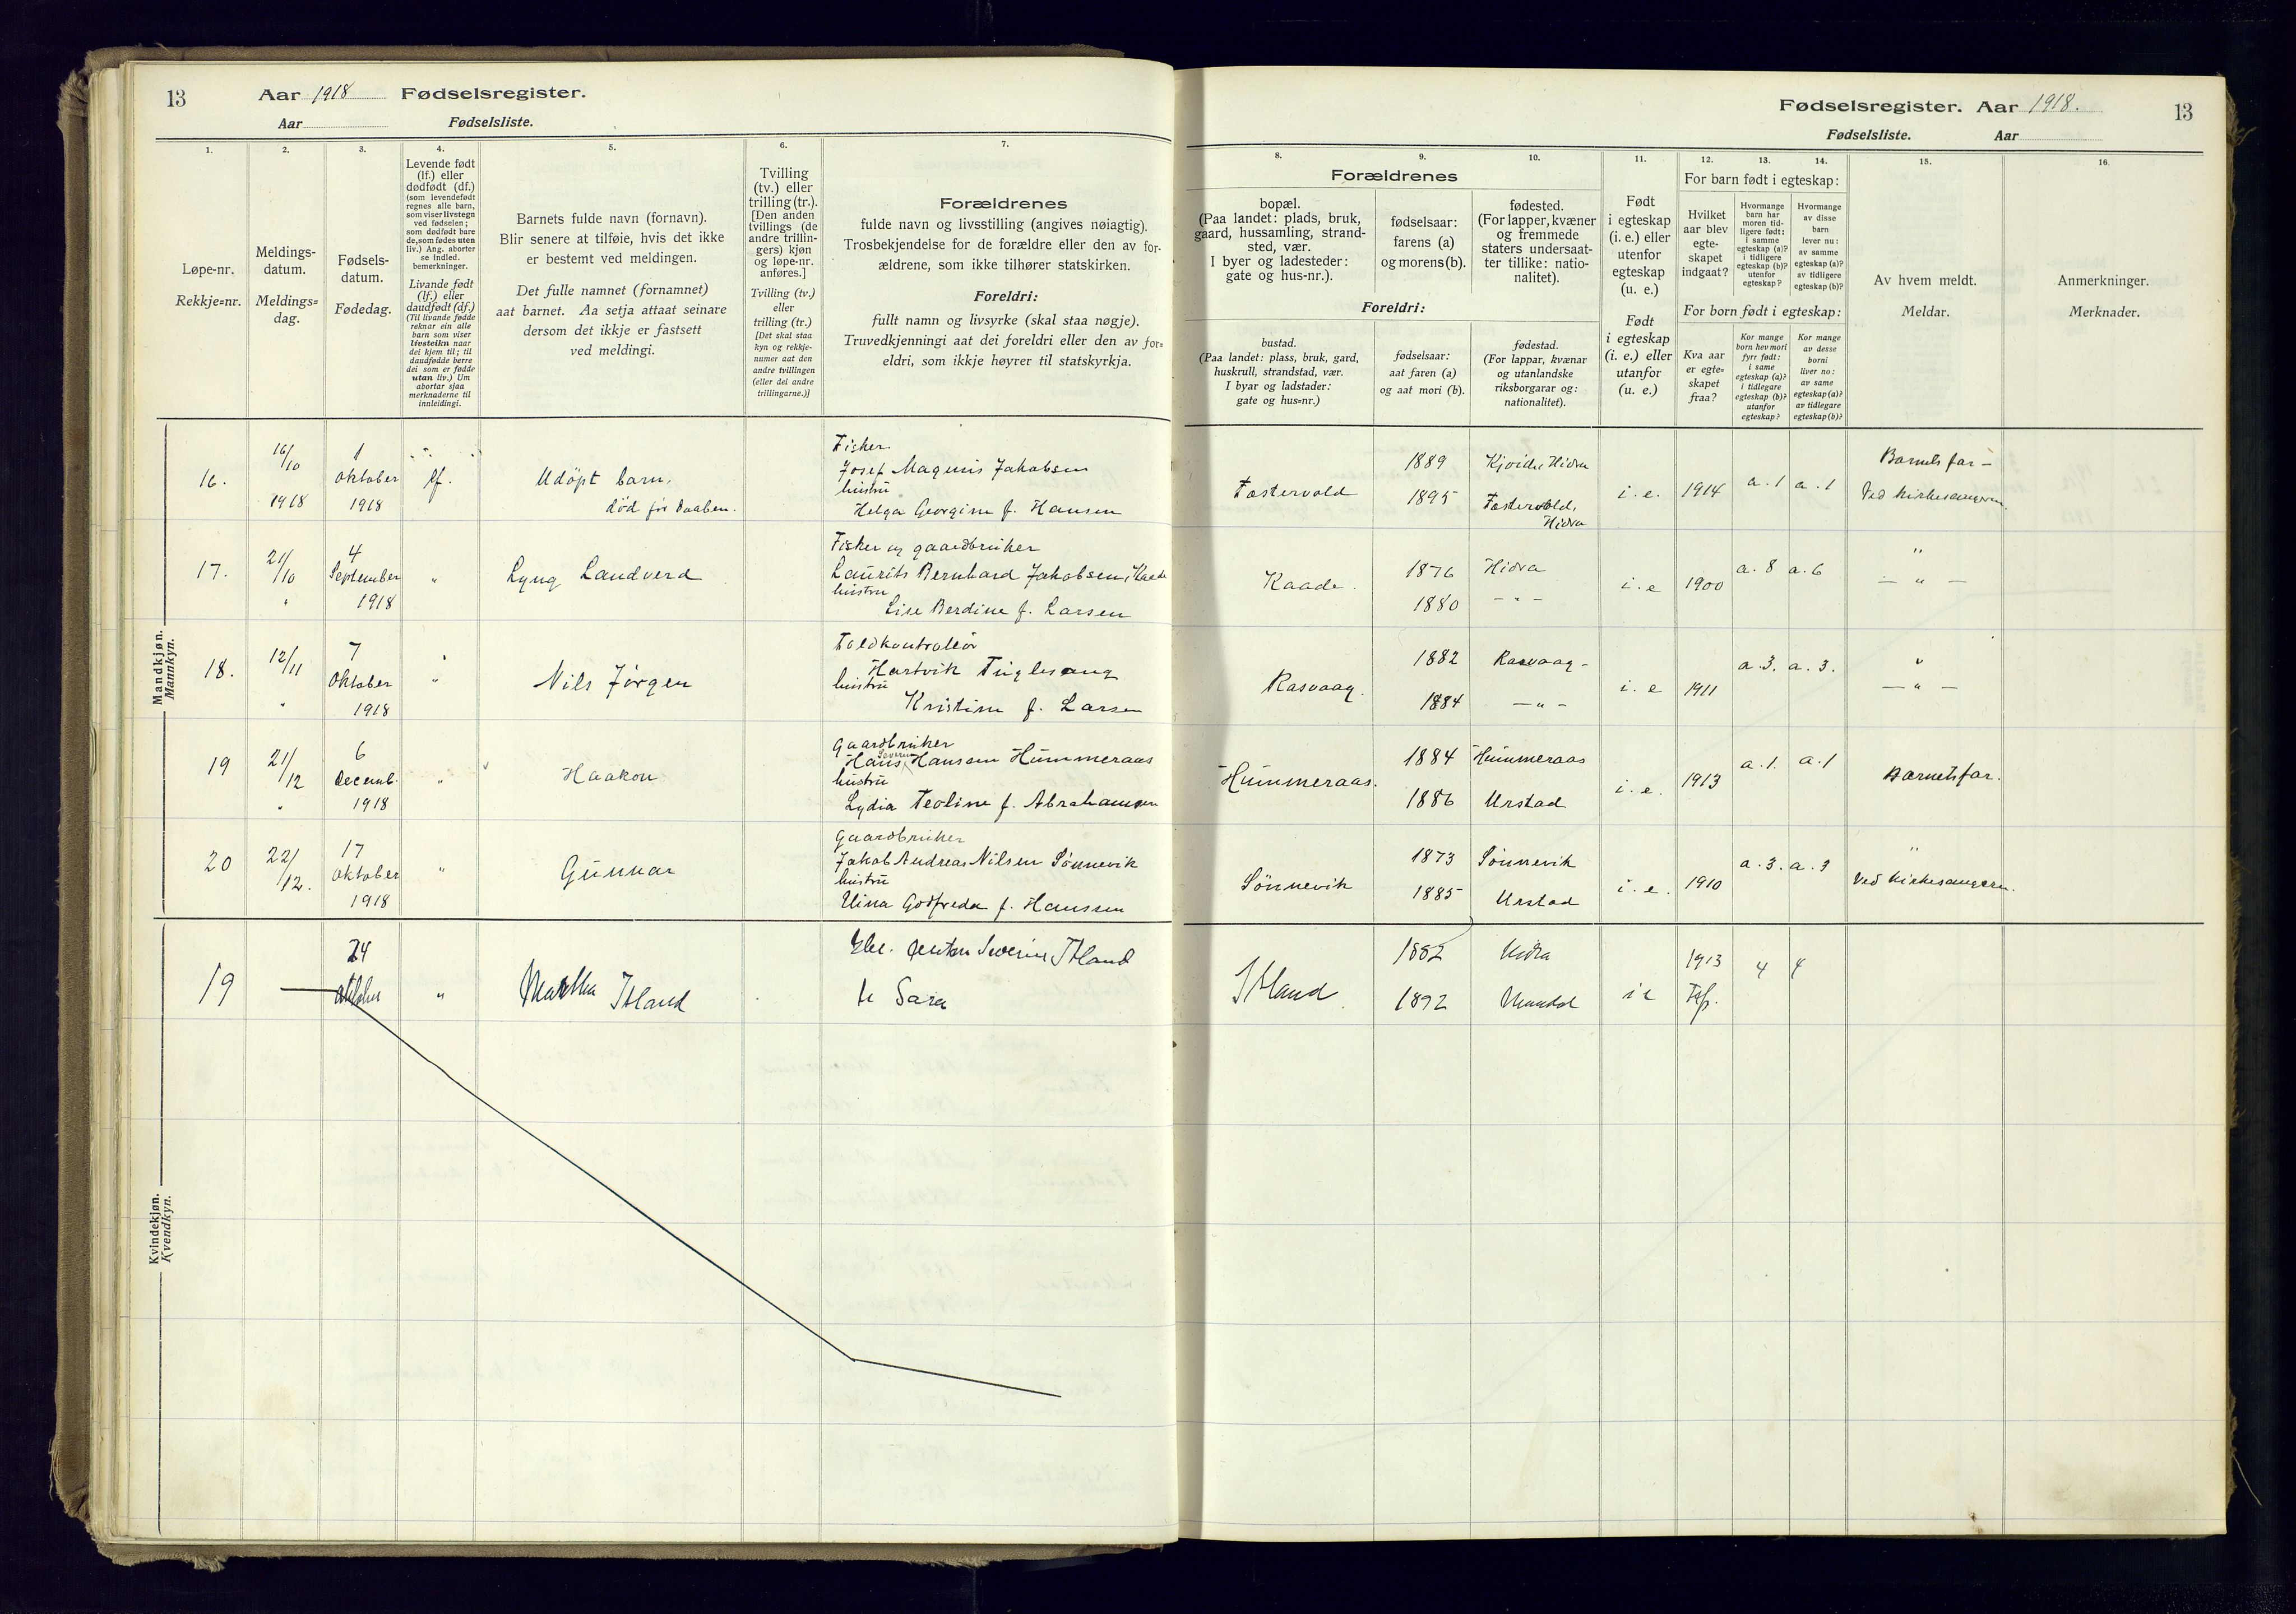 13
Aar 1918
Fødselsregister.
Aar
Fødselsliste.
1.
Løpe-nr.
Rekkje=nr.
2.
Meldings-
datum.
Meldings=
dag.
3.
Fødsels-
datum.
Fødedag.
4.
Levende født
(lf.) eller
dødfødt (df.)
(som levendefødt
regnes alle barn,
som viser livstegn
ved fødselen;
som dødfødt bare
de, som fødes uten
liv.) Ang. aborter
se indled.
bemerkninger.
Livande født
(lf.) eller
daudfødt (df.)
(Til livande fødde
reknar ein alle
barn som viser
livsteikn naar
dei kjem til; til
daudfødde berre
dei som er fødde
utan liv.) Um
abortar sjaa
merknaderne til
innleidingi.
5.
Barnets fulde navn (fornavn).
Blir senere at tilføie, hvis det ikke
er bestemt ved meldingen.
Det fulle namnet (fornamnet)
aat barnet. Aa setja attaat seinare
dersom det ikkje er fastsett
ved meldingi.
6.
Tvilling
(tv.) eller
trilling (tr.).
[Den anden
tvillings (de
andre trillin-
gers) kjøn
og løpe-nr.
anføres.]
Tvilling (tv.)
eller
trilling (tr.)
[Det skal staa
kyn og rekkje-
numer aat den
andre tvillingen
(eller dei andre
trillingarne.)]
7.
Forældrenes
fulde navn og livsstilling (angives nøiagtig).
Trosbekjendelse for de forældre eller den av for-
ældrene, som ikke tilhører statskirken.
Foreldri:
fullt namn og livsyrke (skal staa nøgje).
Truvedkjenningi aat dei foreldri eller den av for=
eldri, som ikkje høyrer til statskyrkja.
Mandkjøn.
Mannkyn.
16.
16/10
1918
1
Oktober
1918
lf.
Udöpt barn,
död før daaben.
Fisker
Josef Magnus Jakobsen
hustru
Helga Georgine f. Hansen
17.
21/10
"
4
September
1918
"
Lyng Landverd
Fisker og gaardbruker
Laurits Bernhard Jakobsen, Kaade
hustru
Lise Berdine f. Larsen
18.
12/11
"
7
Oktober
1918
"
Nils Jörgen
Toldkontrolör
Hartvik Tuglesang
hustru
Kristine f. Larsen
19
21/12
"
6
Decemb.
1918
"
Haakon
Gaardbruker
Severin
Hans Hansen Hummeraas
hustru
Lydia Teoline f. Abrahamsen
20
22/12.
17
Oktober
1918
"
Gunnar
Gaardbruker
Jakob Andreas Nilsen Sönnevik
hustru
Elina Godfreda f. Hanssen
Kvindekjøn.
Kvendkyn.
19
24
Oktober
"
Martha Itland
Anton Severin Itland
h Sara
Fødselsregister. Aar 1918.
13
Fødselsliste.
Aar
8.
9.
10.
Forældrenes
bopæl.
(Paa landet: plads, bruk,
gaard, hussamling, strand-
sted, vær.
I byer og ladesteder:
gate og hus-nr.).
fødselsaar:
farens (a)
og morens (b).
fødested.
(For lapper, kvæner
og fremmede
staters undersaat-
ter tillike: natio-
nalitet).
Foreldri:
bustad.
(Paa landet: plass, bruk, gard,
huskrull, strandstad, vær.
I byar og ladstader:
gate og hus=nr.)
fødselsaar:
aat faren (a)
og aat mori (b).
fødestad.
(For lappar, kvænar
og utanlandske
riksborgarar og:
nationalitet).
11.
Født
i egteskap
(i. e.) eller
utenfor
egteskap
(u. e.)
Født
i egteskap
(i. e.) eller
utanfor
(u. e.)
12.
13.
14.
For barn født i egteskap:
Hvilket
aar blev
egte-
skapet
indgaat?
Hvormange
barn har
moren tid-
ligere født:
i samme
egteskap (a)?
i tidligere
egteskap (b)?
utenfor
egteskap?
Hvormange
av disse
barn
lever nu:
av samme
egteskap (a)?
av tidligere
egteskap (b)?
For born født i egteskap:
Kva aar
er egte=
skapet
fraa?
Kor mange
born hev mori
fyrr født:
i same
egteskap (a)?
i tidlegare
egteskap (b)?
utanfor
egteskap?
Kor mange
av desse
borni
liver no:
av same
egteskap (a)?
av tidlegare
egteskap (b)?
15.
Av hvem meldt.
Meldar.
16.
Anmerkninger.
Merknader.
Fostervold
1889
1895
Kjoide Hidra
Fostervold,
Hidra
i. e.
1914
a. 1
a. 1
Barnets far –
Ved kirkesangeren
Kaade.
1876
1880
Hidra
– " –
i. e
1900
a. 8
a. 6
"
– " –
Rasvaag.
1882
1884
Rasvaag –
– " –
i. e
1911
a. 3.
a. 3.
"
– " –
Hummeraas.
1884
1886
Hummeraas
Urstad
i. e.
1913
a. 1.
a. 1
Barnets far.
Sönnevik
1873
1885
Sönnevik
Urstad
i. e.
1910
a. 3.
a. 3
"
Ved kirkesangeren.
Itland
1882
1892
Hidra
Mandal
i e
1913
4
4